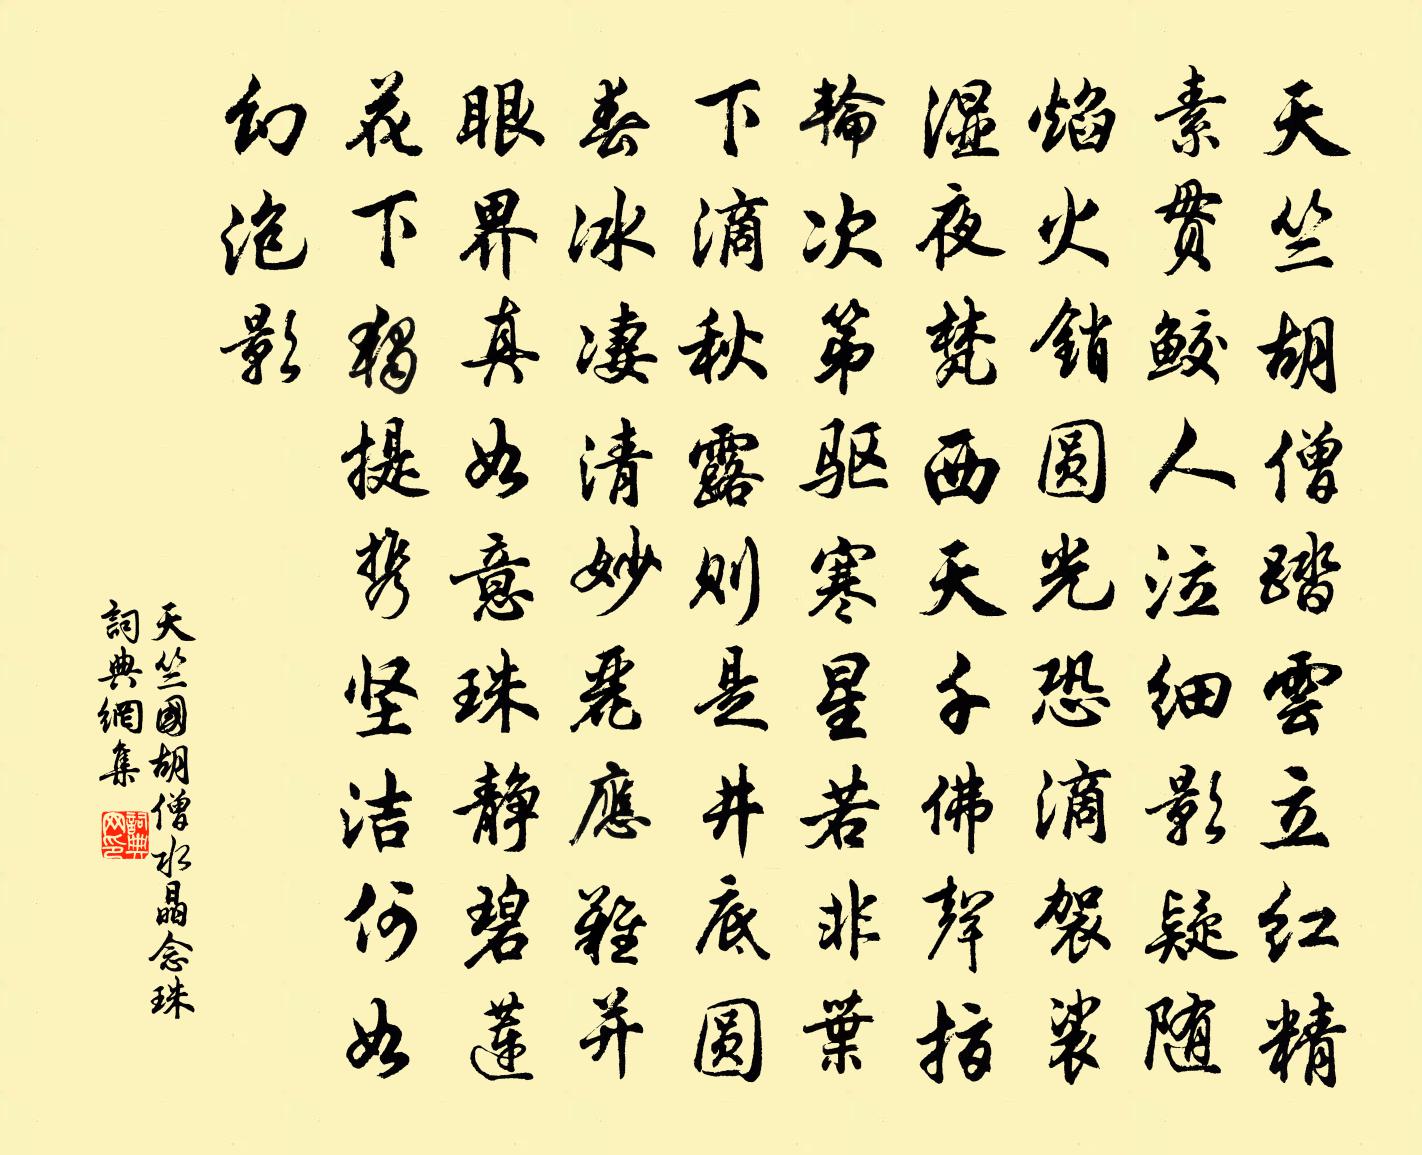 天竺胡僧踏雲立红精
素贯鮫人泣细影疑随
焰火銷圆光恐滴袈裟
湿夜梵西天千佛聲指
輪次第驱寒星若非葉
下滴秋露则是井底圆
春冰凄清妙麗應難并
眼界真如意珠静碧蓮
花下獨提携坚洁何如
幻泡影
天竺國胡僧水晶念珠
詞典網集
詞典
网印